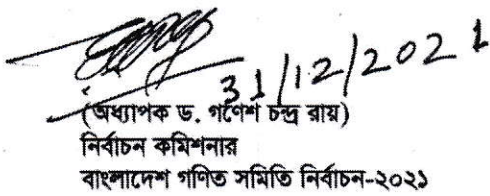 31/12/2021
(অধ্যাপক ড. গণেশ চন্দ্র রায়)
নির্বাচন কমিশনার
বাংলাদেশ গণিত সমিতি নির্বাচন-২০২১